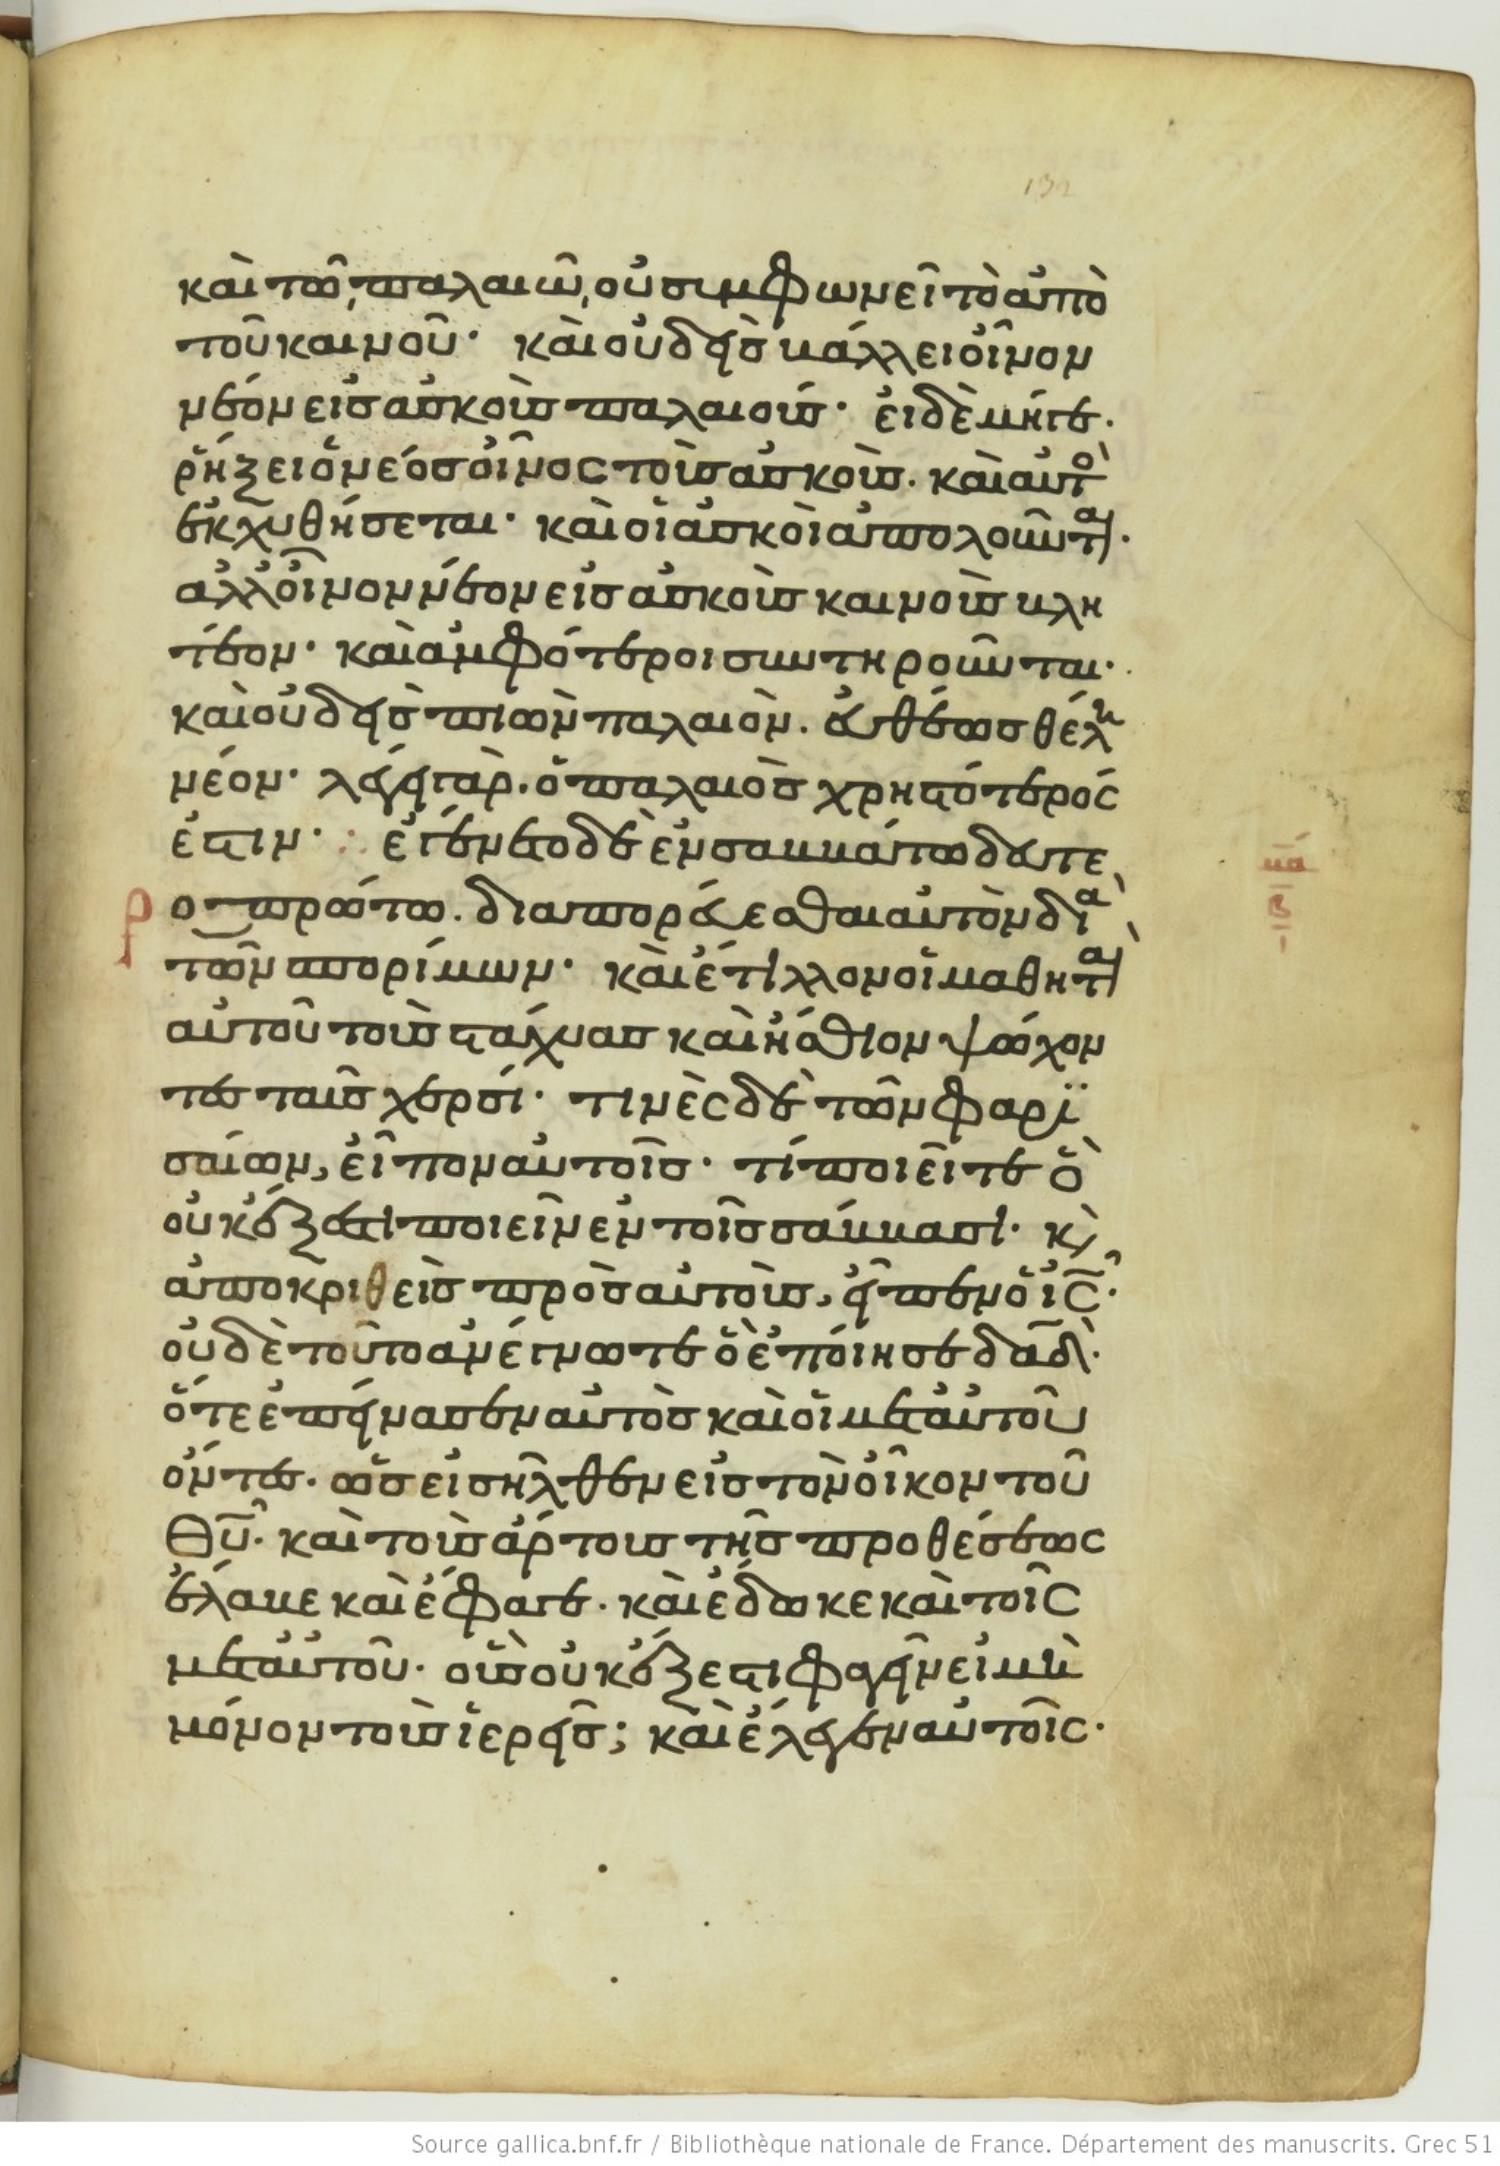 132
καὶ τῶ παλαιῶ, οὐ συμφωνεῖ τὸ ἀπὸ
τοῦ καινοῦ· καὶ οὐδεὶς βάλλει οἶνον
νέον εἰς ἀσκοὺς παλαιούς· εἰ δὲ μήγε.
ῥήξει ὁ νέος οἶνος τοὺς ἀσκούς. καὶ αὐτὸ
ἐκχυθήσεται· καὶ οἱ ἀσκοὶ ἀπολοῦνται·
ἀλλ οἶνον νέον εἰς ἀσκοὺς καινοὺς βλη
τέον· καὶ ἀμφότεροι συντηροῦνται·
καὶ οὐδεὶς πιὼν παλαιὸν. εὐθέως θέλει
νέον· λέγει γὰρ. ὁ παλαιὸς χρηστότερός
ἐστιν· ἐγένετο δὲ ἐν σαββάτω δευτε
ροπρώτω. διαπορεύεσθαι αὐτὸν διὰ
τῶν σπορίμων· καὶ ἔτιλλον οἱ μαθηταὶ
αὐτοῦ τοὺς στάχυας καὶ ἤσθιον ψώχον
τες ταῖς χερσί· τινὲς δὲ τῶν φαρϊ
σαίων, εἶπον αὐτοῖς· τί ποιεῖτε ὃ
οὐκ ἔξεστι ποιεῖν ἐν τοῖς σάββασι· κὶ
ἀποκριθεὶς πρὸς αὐτοὺς, εἶπεν ὁ ις·
οὐδὲ τοῦτο ἀνέγνωτε ὃ ἐποίησε δαδ·
ὅτε ἐπείνασεν αὐτὸς καὶ οἱ μετ αὐτοῦ
ὄντες. ὡς εἰσῆλθεν εἰς τὸν οἶκον τοῦ
θυ· καὶ τοὺς ἄρτους τῆς προθέσεως
ἔλαβε καὶ ἔφαγε. καὶ ἔδωκε καὶ τοῖς
μετ αὐτοῦ· οὓς οὐκ ἔξεστι φαγεῖν εἰ μὴ
μόνον τοὺς ἱερεῖς; καὶ ἔλεγεν αὐτοῖς·
μα
β
Source gallica.bnf.fr / Bibliothèque nationale de France. Département des manuscrits. Grec 51